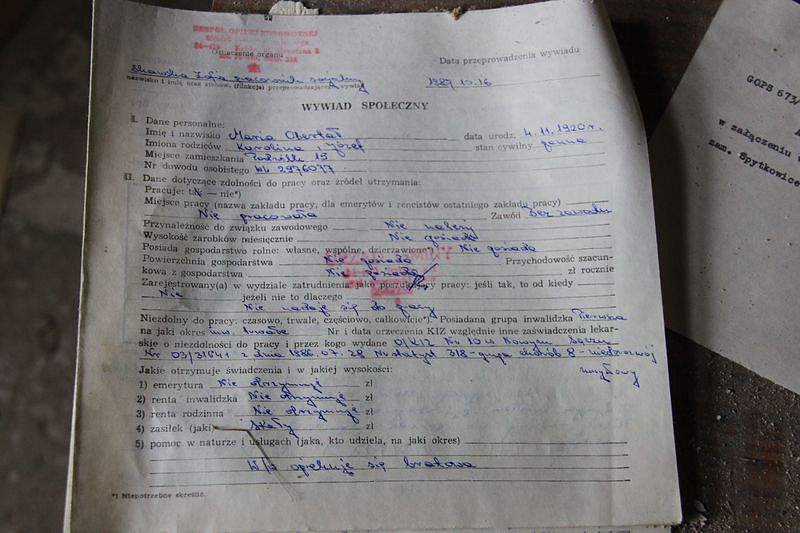 ZESPÓŁ OPIEKI ZDROWOTNEJ
Oznaczenie organu
Data przeprowadzenia wywiadu
Zofia pracownik socjalny
1987.10.16
nazwisko i imię oraz stanow. (funkcja) przeprowadzającego wywiad
WYWIAD SPOŁECZNY
I. Dane personalne:
Imię i nazwisko Maria Obertał data urodz. 4.11.1920 r.
Imiona rodziców Karolina i Józef stan cywilny panna
Miejsce zamieszkania 15
Nr dowodu osobistego 2976077
II. Dane dotyczące zdolności do pracy oraz źródeł utrzymania:
Pracuje: tak — nie*)
Miejsce pracy (nazwa zakładu pracy, dla emerytów i rencistów ostatniego zakładu pracy)
Nie pracowała Zawód bez zawodu
Przynależność do związku zawodowego Nie należy
Wysokość zarobków miesięcznie Nie posiada
Posiada gospodarstwo rolne: własne, wspólne, dzierżawione*) Nie posiada
Powierzchnia gospodarstwa Nie posiada Przychodowość szacun-
kowa z gospodarstwa Nie posiada zł rocznie
Zarejestrowany(a) w wydziale zatrudnienia jako poszukujący pracy: jeśli tak, to od kiedy
Nie jeżeli nie to dlaczego
Nie nadaje się do pracy
Niezdolny do pracy: czasowo, trwale, częściowo, całkowicie*) Posiadana grupa inwalidzka Pierwsza
na jaki okres na trwałe Nr i data orzeczenia KIZ względnie inne zaświadczenia lekar-
skie o niezdolności do pracy i przez kogo wydane O/KIZ Nr 10 w Nowym Sączu
Nr 03/31841 z dnia 1986.07.28 Nr statyst 318-grupa chorób 8-niedorozwój
umysłowy
Jakie otrzymuje świadczenia i w jakiej wysokości:
1) emerytura Nie otrzymuje zł
2) renta inwalidzka Nie otrzymuje zł
3) renta rodzinna Nie otrzymuje zł
4) zasiłek (jaki) stały zł
5) pomoc w naturze i usługach (jaka, kto udziela, na jaki okres)
W/w opiekuje się bratowa
*) Niepotrzebne skreślić.
GOPS 673/
w załączeniu
zam. Spytkowice